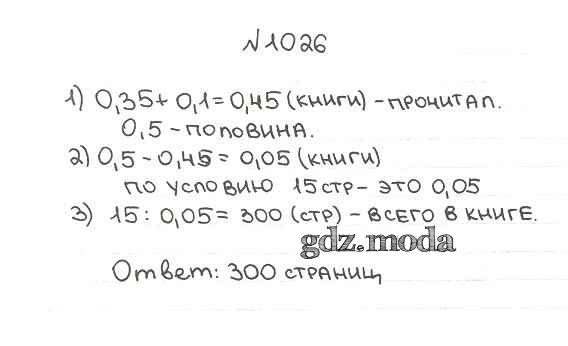 №1026
1) 0,35 + 0,1 = 0,45 (книги) - прочитал.
0,5 - половина.
2) 0,5 - 0,45 = 0,05 (книги)
по условию 15 стр - это 0,05
3) 15 : 0,05 = 300 (стр) - всего в книге.
gdz.moda
Ответ: 300 страниц